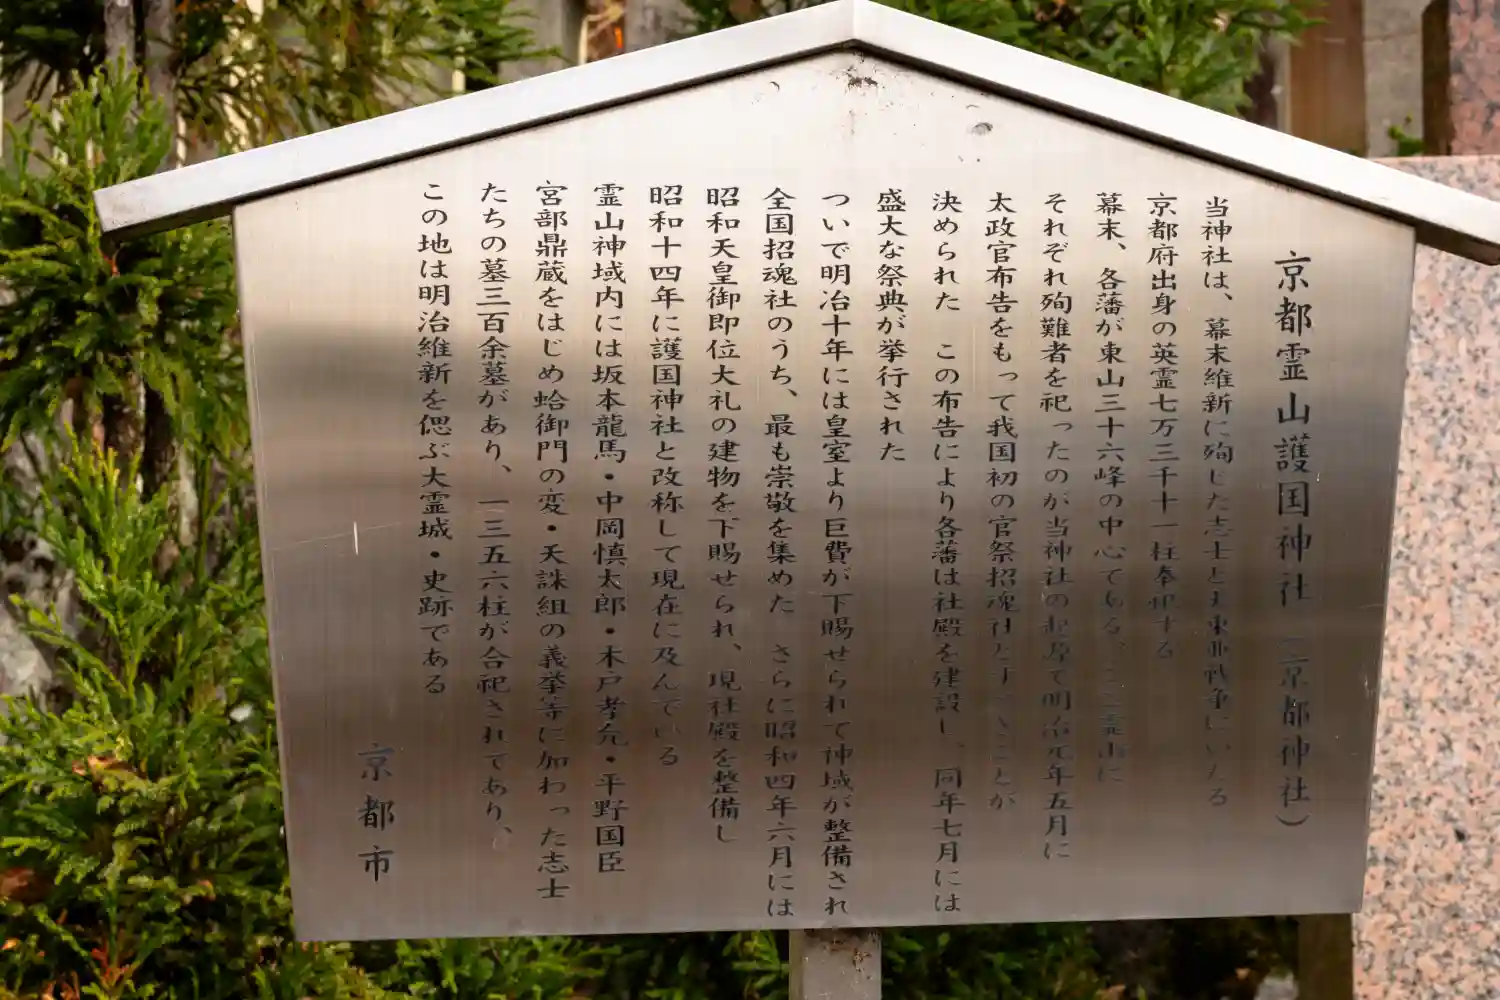 京都霊山護国神社（京都神社）
当神社は、幕末維新に殉じた志士と大東亜戦争にいたる
京都府出身の英霊七万三千十一柱奉祀する
幕末、各藩が東山三十六峰の中心である、ここ霊山に
それぞれ殉難者を祀ったのが当神社の起原で明治元年五月に
太政官布告をもって我国初の官祭招魂社とすべきことが
決められた この布告により各藩は社殿を建設し、同年七月には
盛大な祭典が挙行された
ついで明治十年には皇室より巨費が下賜せられて神域が整備され
全国招魂社のうち、最も崇敬を集めた さらに昭和四年六月には
昭和天皇御即位大礼の建物を下賜せられ、現社殿を整備し
昭和十四年に護国神社と改称して現在に及んでいる
霊山神域内には坂本龍馬・中岡慎太郎・木戸孝允・平野国臣
宮部鼎蔵をはじめ蛤御門の変・天誅組の義挙等に加わった志士
たちの墓三百余墓があり、一三五六柱が合祀されてあり、
この地は明治維新を偲ぶ大霊城・史跡である
京都市